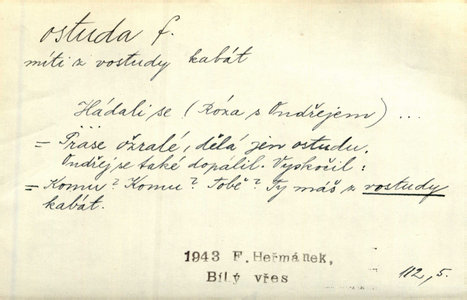 ostuda f.
míti z vostudy kabát
Hádali se (Róza s Ondřejem) ...
= Prase ožralé, dělá jen ostudu.
Ondřej se také dopálil. Vyskočil:
= Komu? Komu? Tobě? Ty máš z vostudy
kabát.
1943 F. Heřmánek,
Bílý vřes
112,5.